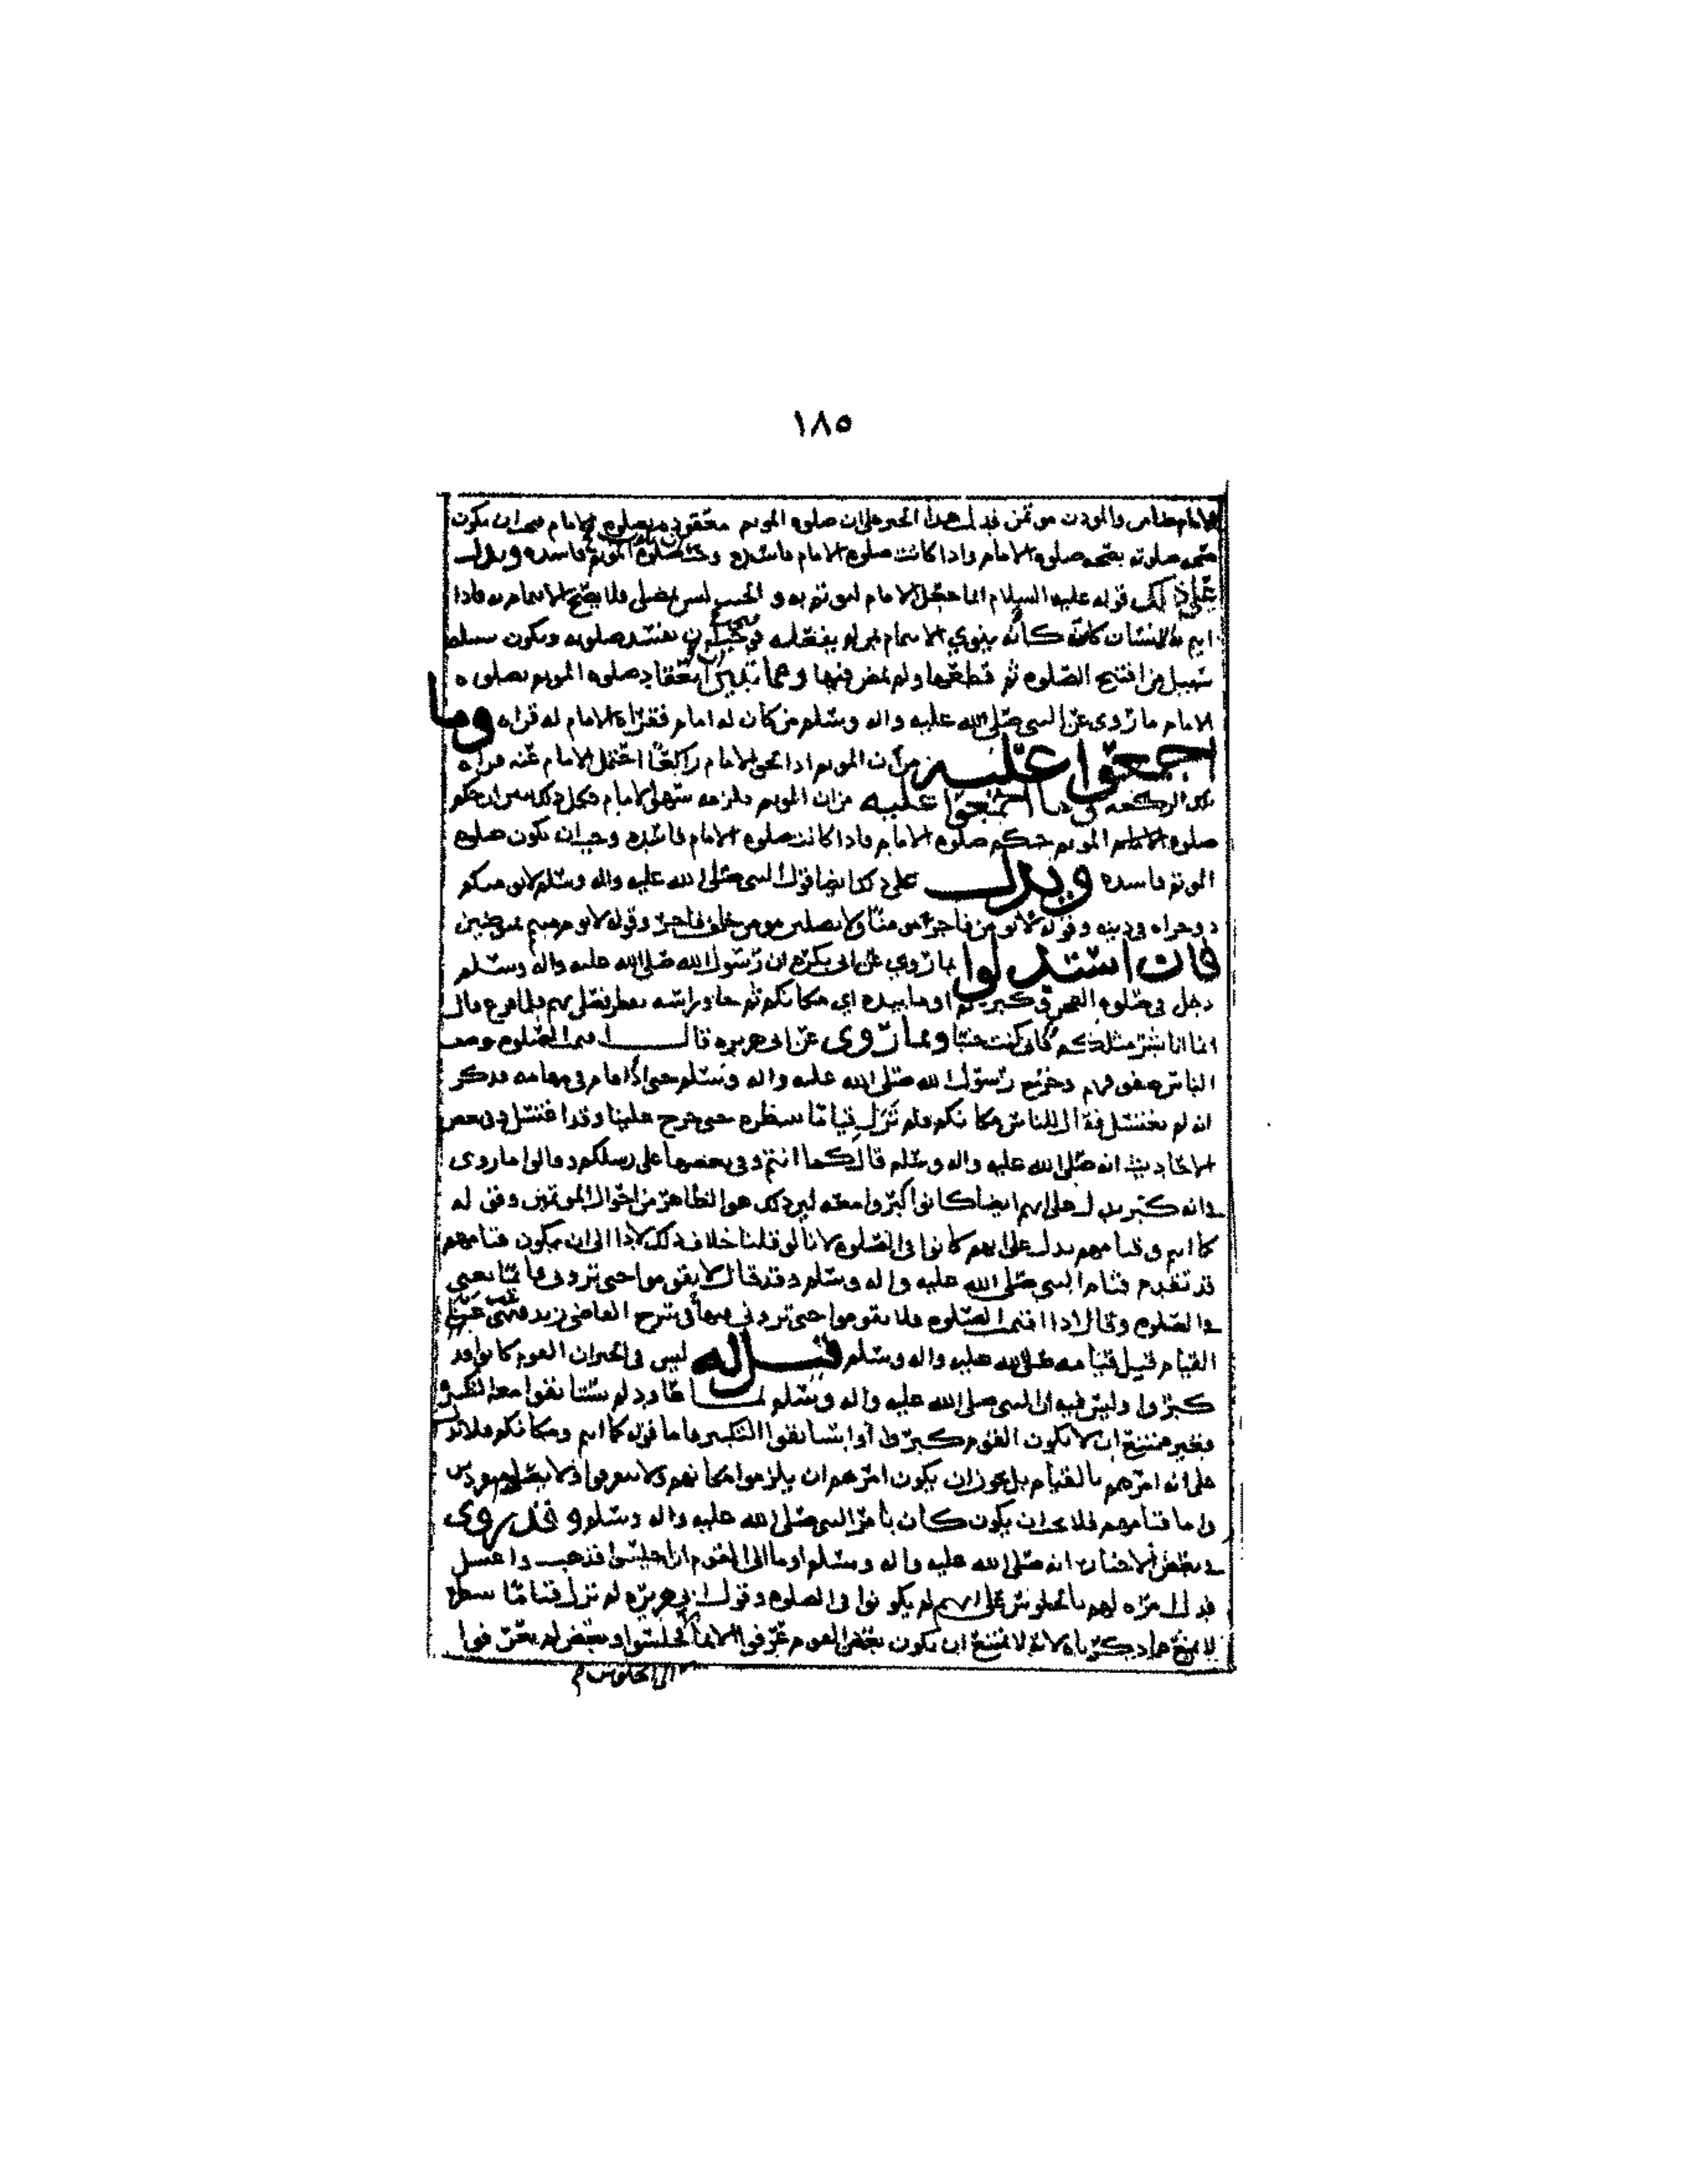 ١٨٥
الامام ضامن والموذن موتمن فدل هذا الخبر على ان صلوه الموتم معقوده بصلوه الامام فيجب ان تكون
صحه صلوته بصحه صلوه الامام واذا كانت صلوه الامام فاسده وجب ان تكون صلوه الموتم فاسده ويدل
على ذلك قوله عليه السلام انما جعل الامام ليوتم به والجنب ليس بمصلى فلا يصح الائتمام به فاذا
ايتم به الانسان كان كانه ينوي الائتمام ثم لم يفعله فوجب ان تفسد صلوته ويكون سبيله
سبيل من افتتح الصلوه ثم قطعها ولم يمض فيها ومما يبين انعقاد صلوه الموتم بصلوه
الامام ما روى عن النبي صلى الله عليه واله وسلم من كان له امام فقراة الامام له قراه وما
اجمعوا عليه من ان الموتم اذا لحق الامام راكعا احتمل الامام عنه قراه
تلك الركعه وما اجمعوا عليه من ان الموتم يلزمه سهو الامام فكل ذلك يبين ان حكم
صلوه الموتم حكم صلوه الامام فاذا كانت صلوه الامام فاسده وجب ان تكون صلوه
الموتم فاسده ويدل على ذلك ايضا قول النبي صلى الله عليه واله وسلم لا يومنكم
ذو جراه في دينه وقوله لا يومن فاجر مومنا ولا يصلين مومن خلف فاجر وقوله لا يوم
فان استدلوا بما روي عن ابي بكره ان رسول الله صلى الله عليه واله وسلم
دخل في صلوه الفجر فكبر بهم ثم اوما بيده اي مكانكم ثم جا وراسه يقطر فصلى بهم فلما فرغ قال
انما انا بشر مثلكم كاني كنت جنبا وبما روى عن ابي هريره قال اقيمت الصلوه وصف
الناس صفوفهم وخرج رسول الله صلى الله عليه واله وسلم حتى اذا قام في مقامه ذكر
انه لم يغتسل فقال للناس مكانكم فلم نزل قياما ننتظره حتى خرج علينا وقد اغتسل وفي بعض
الاحاديث انه صلى الله عليه واله وسلم قال كما انتم وفي بعضها على رسلكم وقالوا ما روى
انه كبر يدل على انهم ايضا كانوا كبروا معه لان ذلك هو الظاهر من احوال الموتمين وقوله
كما انتم وقيامهم يدل على انهم كانوا في الصلوه لانا لو قلنا خلاف ذلك لادا الى ان يكون قيامهم
قد تقدم قيام النبي صلى الله عليه واله وسلم وقد قال لا تقوموا حتى تروني قائما يعني
في الصلوه وقال اذا اقيمت الصلوه فلا تقوموا حتى تروني
القيام قبل قيامه صلى الله عليه واله وسلم قيل له ليس في الخبر ان القوم كانوا قد
كبروا وليس فيه ان النبي صلى الله عليه واله وسلم لما عاد لم يستانفوا معه التكبير
وغير ممتنع ان لا يكون القوم كبروا او استانفوا التكبير فاما قوله كما انتم ومكانكم فلا يدل
على انه امرهم بالقيام بل يجوز ان يكون امرهم ان يلزموا مكانهم ولا يتفرقوا
واما قيامهم فلا يجب ان يكون كان بامر النبي صلى الله عليه واله وسلم وقد روى
في بعض الاخبار انه صلى الله عليه واله وسلم اوما الى القوم ان اجلسوا فذهب واغتسل
فدل امره لهم بالجلوس على انهم لم يكونوا في الصلوه وقول ابي هريره لم نزل قياما ننتظره
لا يمنع مما ذكرناه لانه لا يمتنع ان يكون بعض القوم عرفوا الايما الى الجلوس فجلسوا وبعض لم يعرفوا